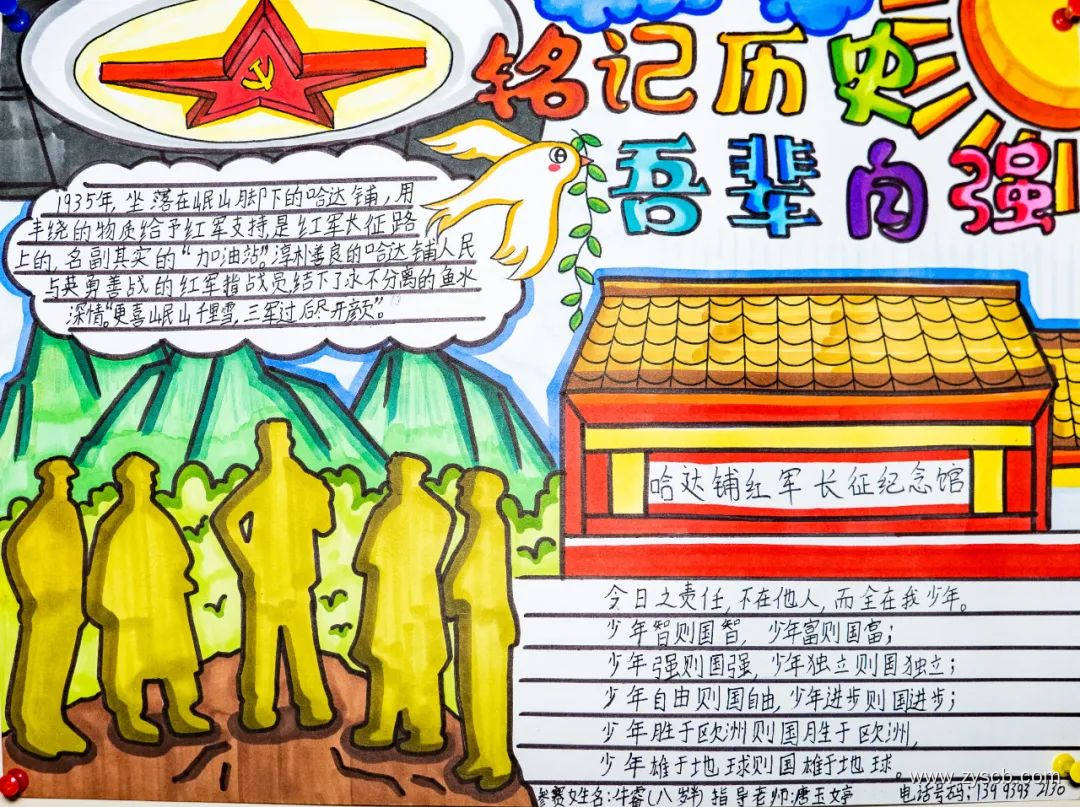 铭记历史
吾辈自强
1935年,坐落在岷山脚下的哈达铺,用
丰绕的物质给予红军支持,是红军长征路
上的,名副其实的“加油站”。淳朴善良的哈达铺人民
与英勇善战的红军指战员,结下了永不分离的鱼水
深情。“更喜岷山千里雪,三军过后尽开颜”。
哈达铺红军长征纪念馆
今日之责任,不在他人,而全在我少年。
少年智则国智,少年富则国富;
少年强则国强,少年独立则国独立;
少年自由则国自由,少年进步则国进步;
少年胜于欧洲则国胜于欧洲,
少年雄于地球则国雄于地球。
参赛姓名:牛睿(八岁半)指导老师:唐玉婷 电话号码:139 9393 2130
www.zyscb.com